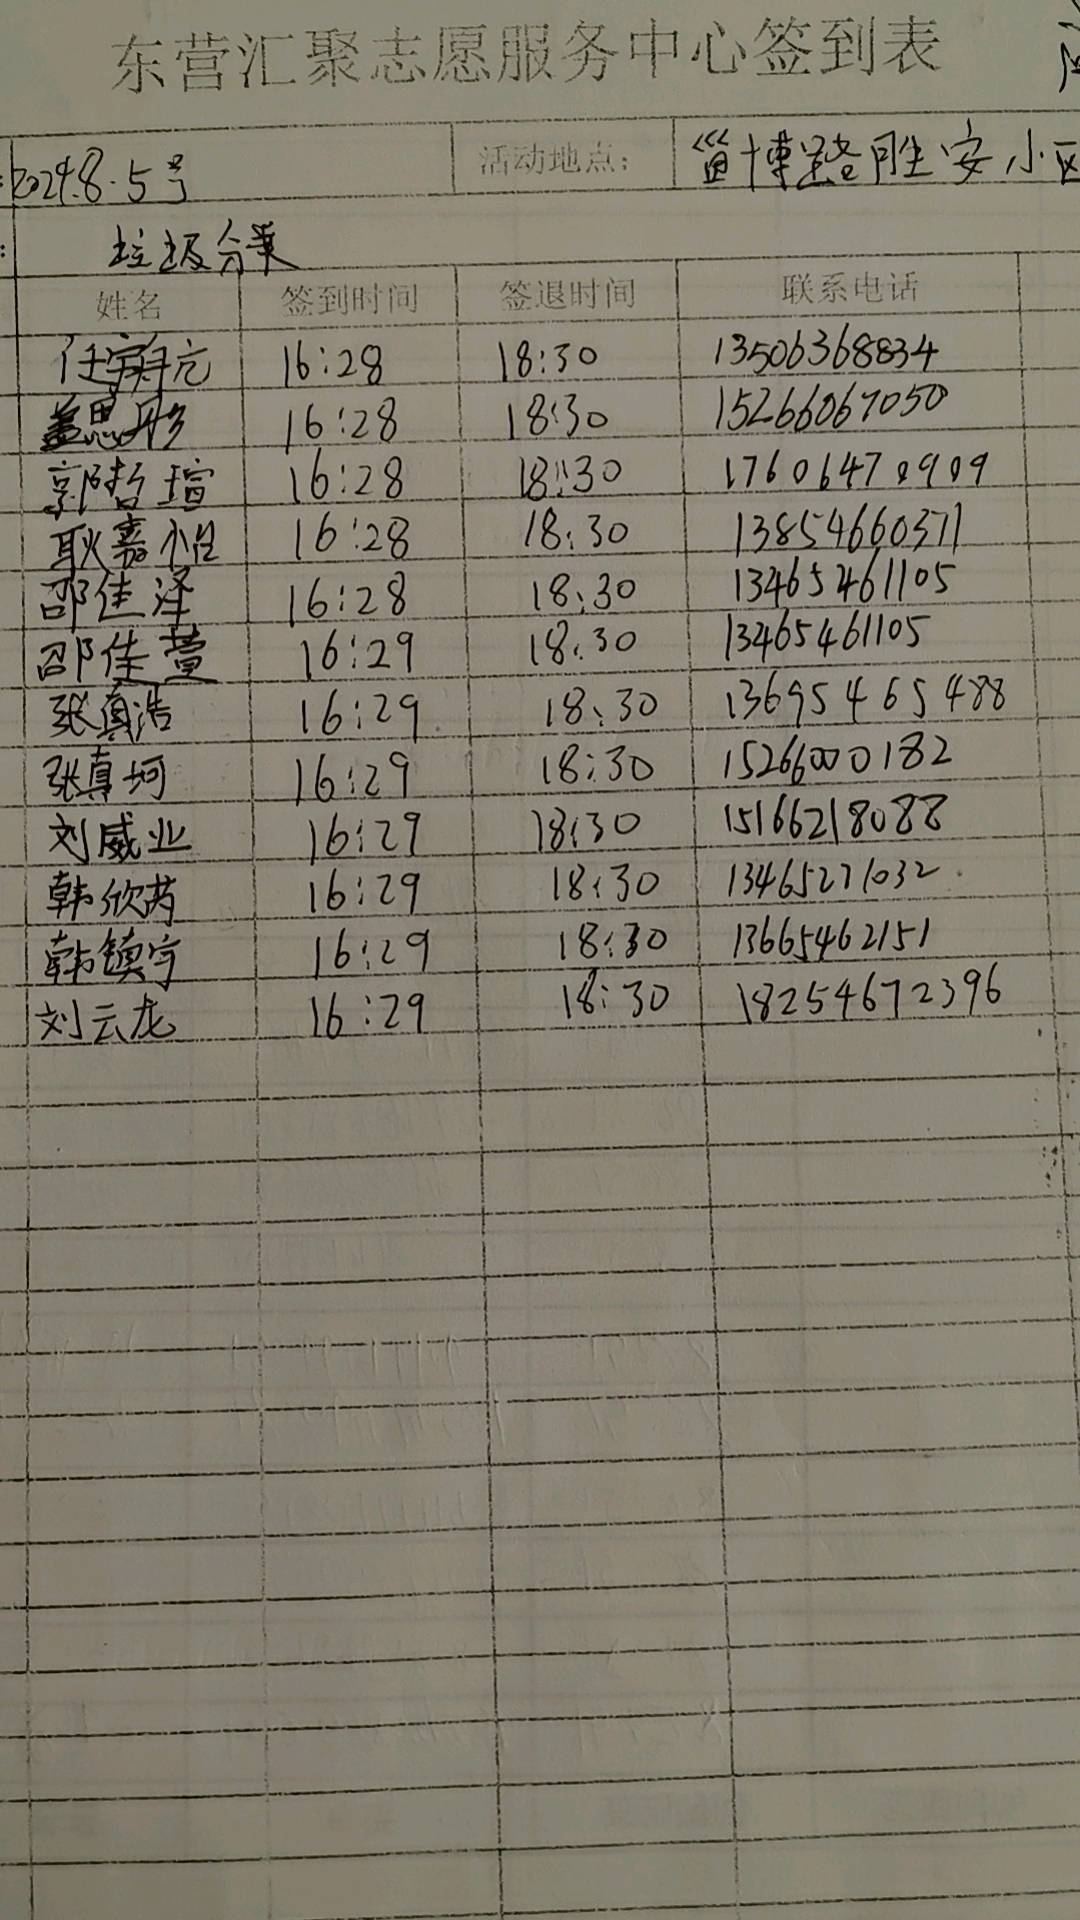 东营汇聚志愿服务中心签到表
2024.8.5号 活动地点: 淄博路胜安小区
垃圾分类
姓名 签到时间 签退时间 联系电话
任 元 16:28 18:30 13506368834
盖思彤 16:28 18:30 15266067050
郭哲瑄 16:28 18:30 17606470909
耿嘉怡 16:28 18:30 13854660371
邵佳泽 16:28 18:30 13465461105
邵佳萱 16:29 18:30 13465461105
张真浩 16:29 18:30 13695465488
张真坷 16:29 18:30 15266000182
刘威业 16:29 18:30 15166218088
韩欣芮 16:29 18:30 13465271032
韩镇宇 16:29 18:30 13665462151
刘云龙 16:29 18:30 18254672396